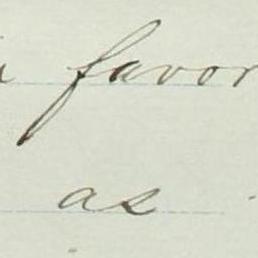 favor
as